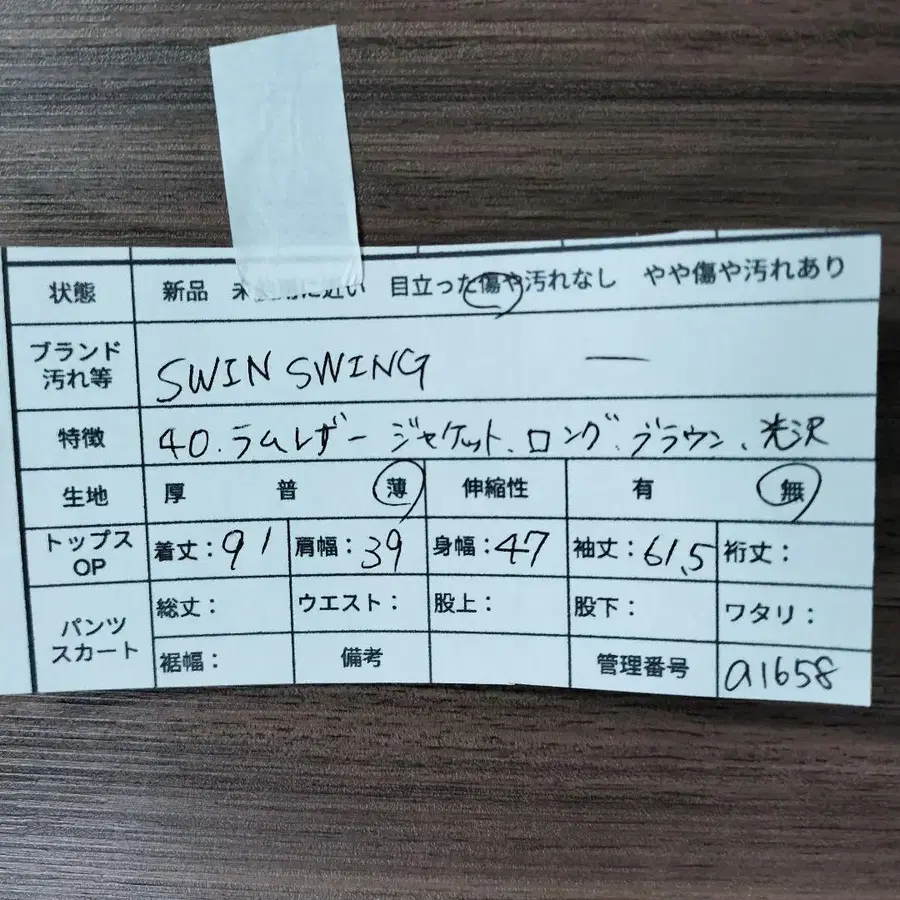 状態 新品 未使用に近い 目立った傷や汚れなし やや傷や汚れあり
ブランド
汚れ等 SWIN SWING ー
特徴 40.ラムレザージャケット、ロング、ブラウン、光沢
生地 厚 普 薄 伸縮性 有 無
トップス
OP 着丈:91 肩幅:39 身幅:47 袖丈:61,5 裄丈:
パンツ
スカート 総丈: ウエスト: 股上: 股下: ワタリ:
裾幅: 備考 管理番号 a1658